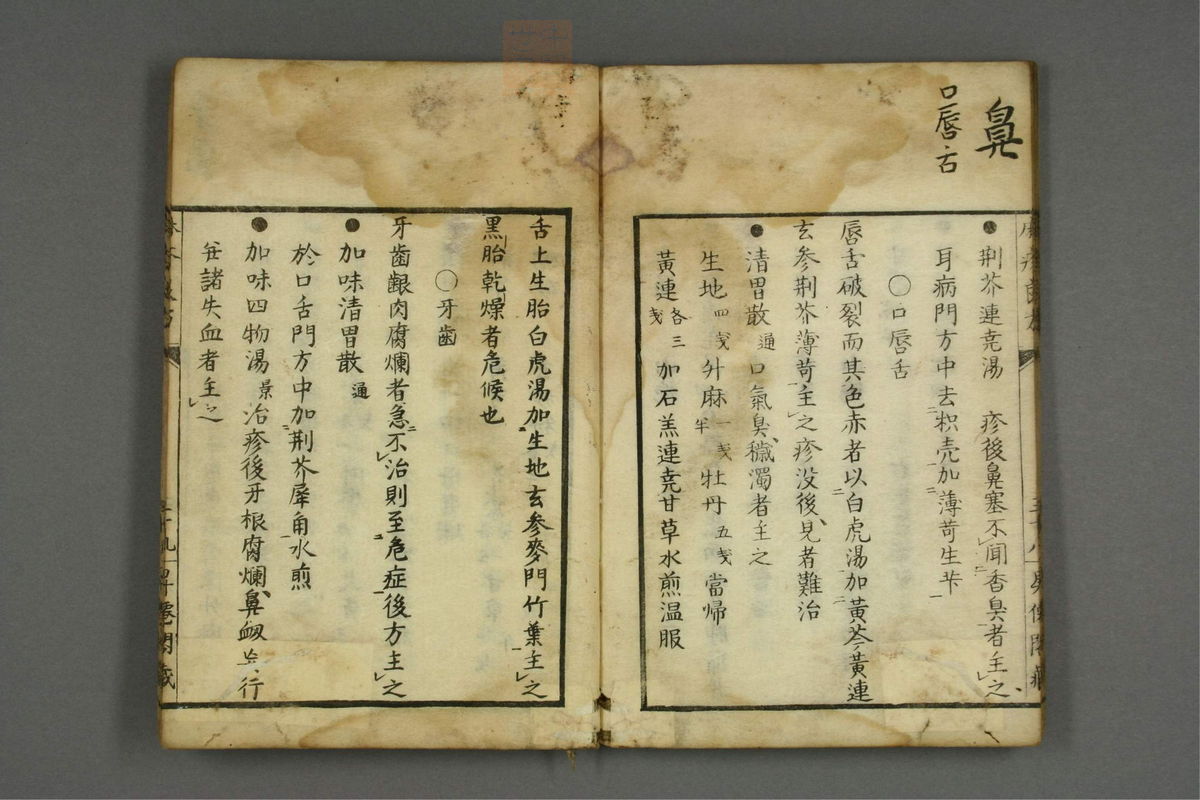 鼻
口唇舌
●荆芥連壳湯 疹後鼻塞不聞香臭者主之
耳病門方中去枳壳加薄苛生芐
○口唇舌
唇舌破裂而其色赤者以白虎湯加黄芩黄連
玄参荆芥薄苛主之疹没後見者難治
●清胃散 通 口氣臭穢濁者主之
生地 四戔 升麻 一戔半 牡丹 五戔 當帰
黄連 各三戔 加石羔連壳甘草水煎温服
舌上生胎白虎湯加生地玄参麥門竹葉主之
黒胎乾燥者危候也
○牙齒
牙齒齦肉腐爛者急不治則至危症後方主之
●加味清胃散 通
於口舌門方中加荆芥犀角水煎
●加味四物湯 景 治疹後牙根腐爛鼻衂並行
并諸失血者主之